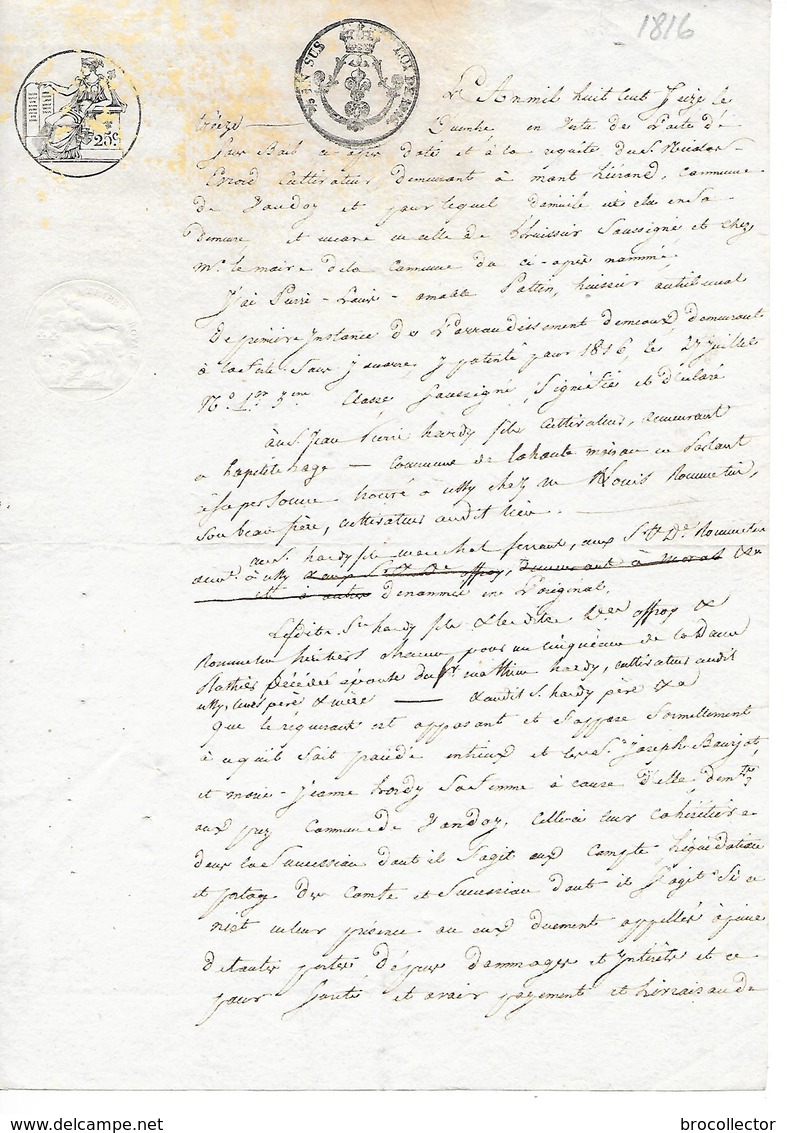 1816
EN SUS LOI DE 1816
25c.
L'An mil huit Cent Seize le
treize Decembre, en Vertu de l'acte
et à la requête du S. Nicolas
Cultivateur demeurant à mont, Commune
de Vandoy et pour lequel domicile est élu en Sa
demeure, et encore en celle de l'huissier Soussigné et chez
Mr. le maire de la Commune du ci-après nommé.
J'ai Pierre-Louis-amable Pattin, huissier au tribunal
De première Instance de L'arrondissement demeaux, demeurant
à la ferté Sous jouarre, y patenté pour 1816, le 27 juillet
No. 3me Classe Soussigné, Signifié et déclaré
au S. Jean Pierre hardy fils Cultivateur, demeurant
a hapetite hage — Commune de lahaute maison en Parlant
à Sa personne trouvé à ussy chez Mr Louis Rommetin,
Son beau père, cultivateur audit lieu.
au S. hardy fils marechal ferrant, aux Srs Rommetin
à ussy denommés en L'original.
Ledit Sr hardy fils & les dits offroy &
Rommetin héritiers chacun pour un cinquième de la Dame
décédée epouse du Sr mathieu hardy, cultivateur audit
ussy, leurs père & mère — & audit S. hardy père
Que le requérant est opposant et S'oppose formellement
à ce qu'il Soit procédé entr'eux et les S. Joseph Bourjot,
et marie-jeanne hardy Sa femme à cause d'elle, demts
aux prez Commune de Vandoy, Celle-ci leur cohéritière
dans la Succession dont il S'agit aux Compte, liquidation
et partage des Comte et Succession dont il S'agit Si ce
n'est en leur présence ou eux duement appellés à peine
de toutes pertes, dépens dommages et Intérêts et ce
pour Sureté et avoir payement et Livraison de
brocollector